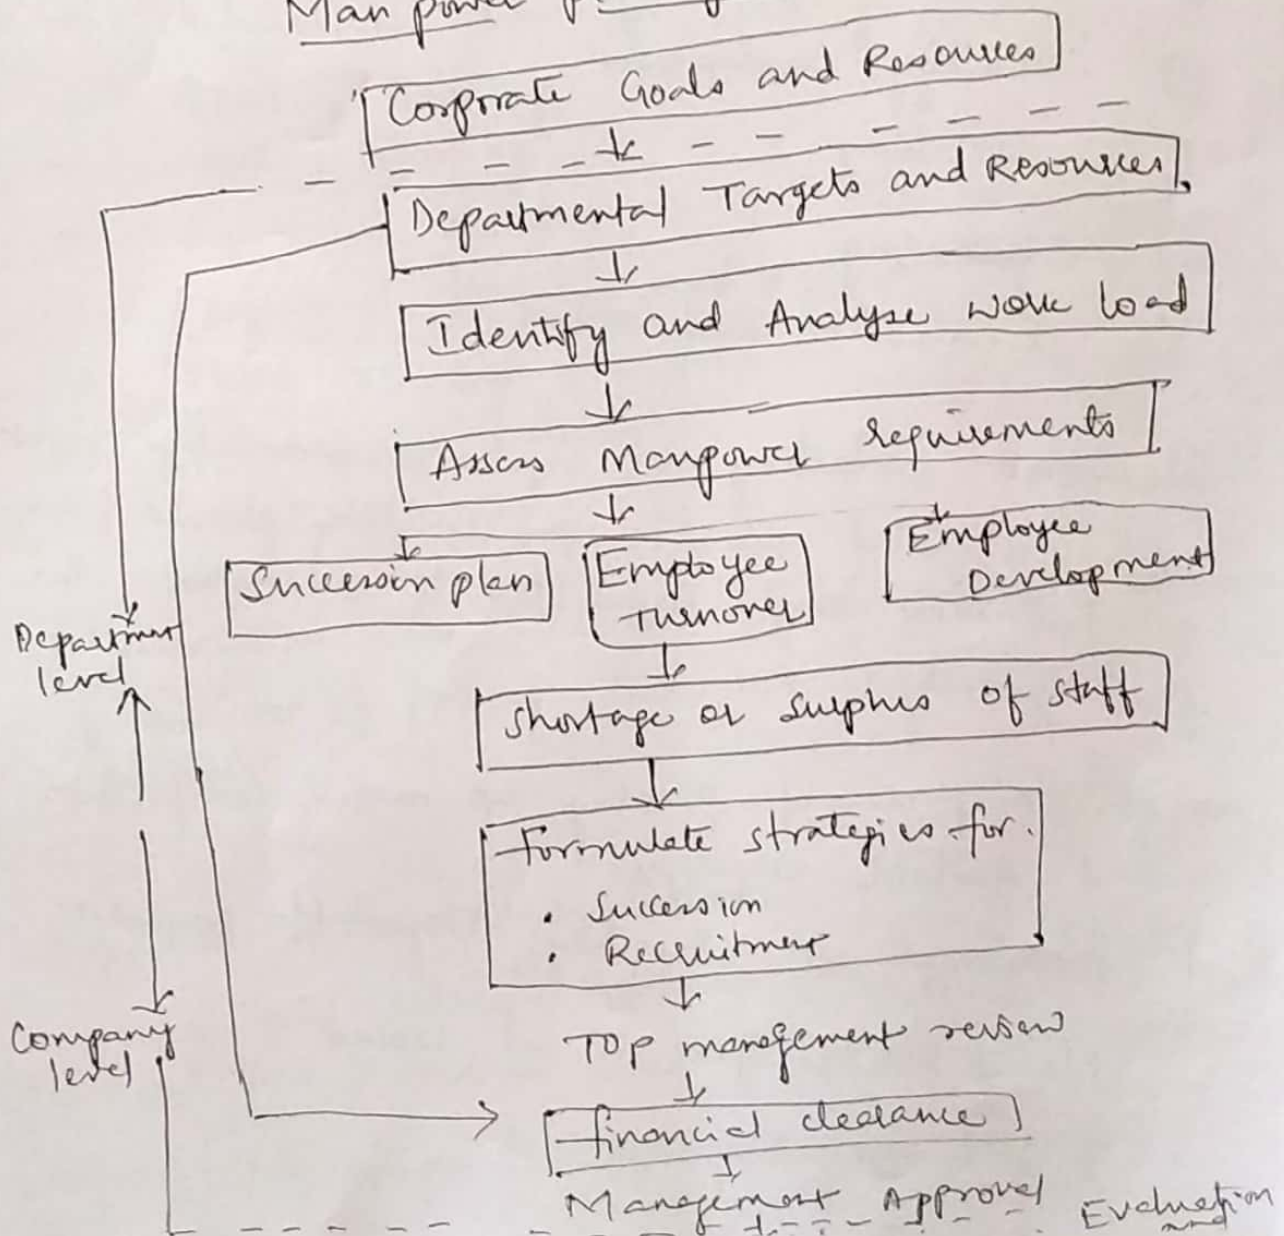 Man power
Corporate Goals and Resources
Departmental Targets and Resources
Identify and Analyse work load
Assess Manpower requirements
Succession plan
Employee
turnover
Employee
Development
Department
level
Shortage or Surplus of staff
Formulate strategies for.
• Succession
• Recruitment
Company
level
TOP management review
financial clearance
Management Approval
Evaluation
and